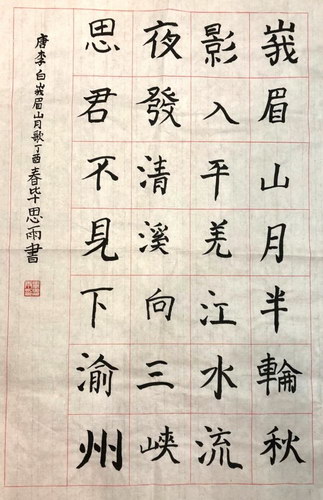 峩眉山月半輪秋
影入平羌江水流
夜發清溪向三峽
思君不見下渝州
唐李白峩眉山月歌丁酉春毕思雨書